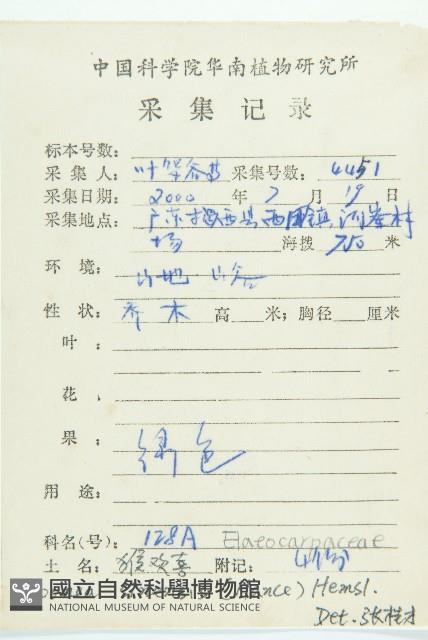 中国科学院华南植物研究所
采集记录
标本号数:
采集人: 叶华谷等 采集号数: 4451
采集日期: 2000 年 7 月 19 日
采集地点: 广东揭西县西田镇河輋林
场 海拨 750 米
环境: 山地 山谷
性状: 乔木 高 米; 胸径 厘米
叶:
花,
果: 绿色
用途:
科名(号): 128A Elaeocarpaceae
土名: 猴欢喜 附记: 4份
(Hance) Hemsl.
國立自然科學博物館
NATIONAL MUSEUM OF NATURAL SCIENCE
Det. 张桂才